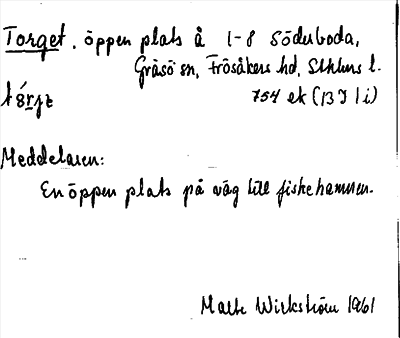 Torget, öppen plats å 1-8 Söderboda,
Gräsö sn, Frösåkers hd, Sthlms l.
754 ek (13 I 1 i)
Meddelaren:
En öppen plats på väg till fiskehamnen.
Malte Wirkström 1961